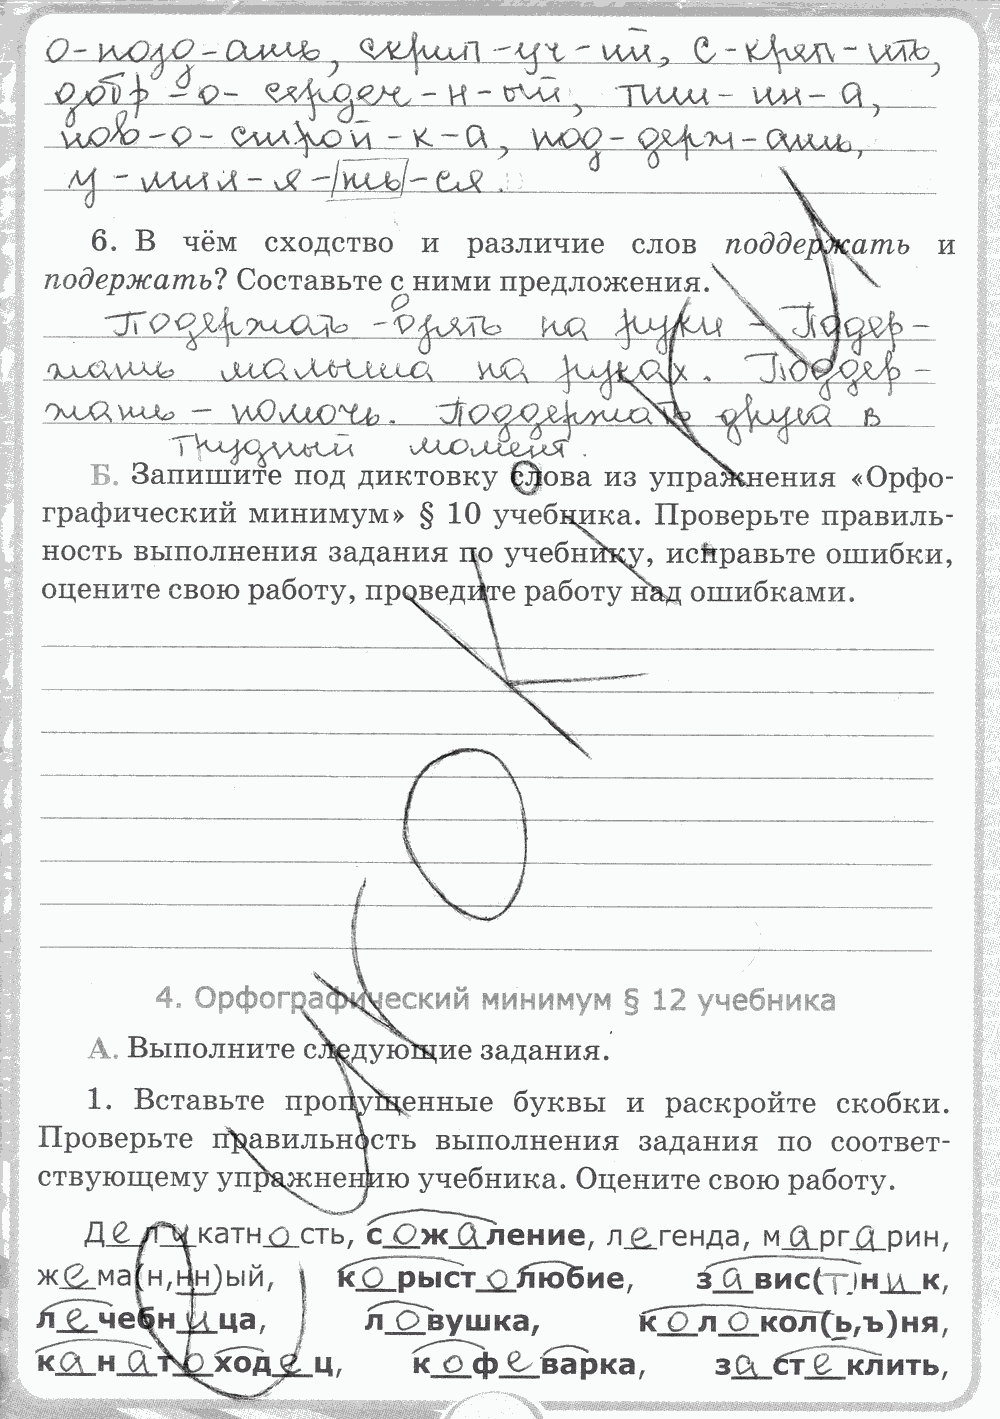 о-позд-ать, скрип-уч-ий, с-креп-ить,
добр-о-сердеч-н-ый, тиш-ин-а,
нов-о-строй-к-а, под-держ-ать,
у-мил-я-ть-ся.
6. В чём сходство и различие слов поддержать и
подержать? Составьте с ними предложения.
Подержать - взять на руки - Подер-
жать малыша на руках. Поддер-
жать - помочь. Поддержать друга в
трудный момент.
Б. Запишите под диктовку слова из упражнения «Орфо-
графический минимум» § 10 учебника. Проверьте правиль-
ность выполнения задания по учебнику, исправьте ошибки,
оцените свою работу, проведите работу над ошибками.
4. Орфографический минимум § 12 учебника
А. Выполните следующие задания.
1. Вставьте пропущенные буквы и раскройте скобки.
Проверьте правильность выполнения задания по соответ-
ствующему упражнению учебника. Оцените свою работу.
Деликатность, сожаление, легенда, маргарин,
жема(н,нн)ый, корыстолюбие, завис(т)ник,
лечебница, ловушка, колокол(ь,ъ)ня,
канатоходец, кофеварка, застеклить,